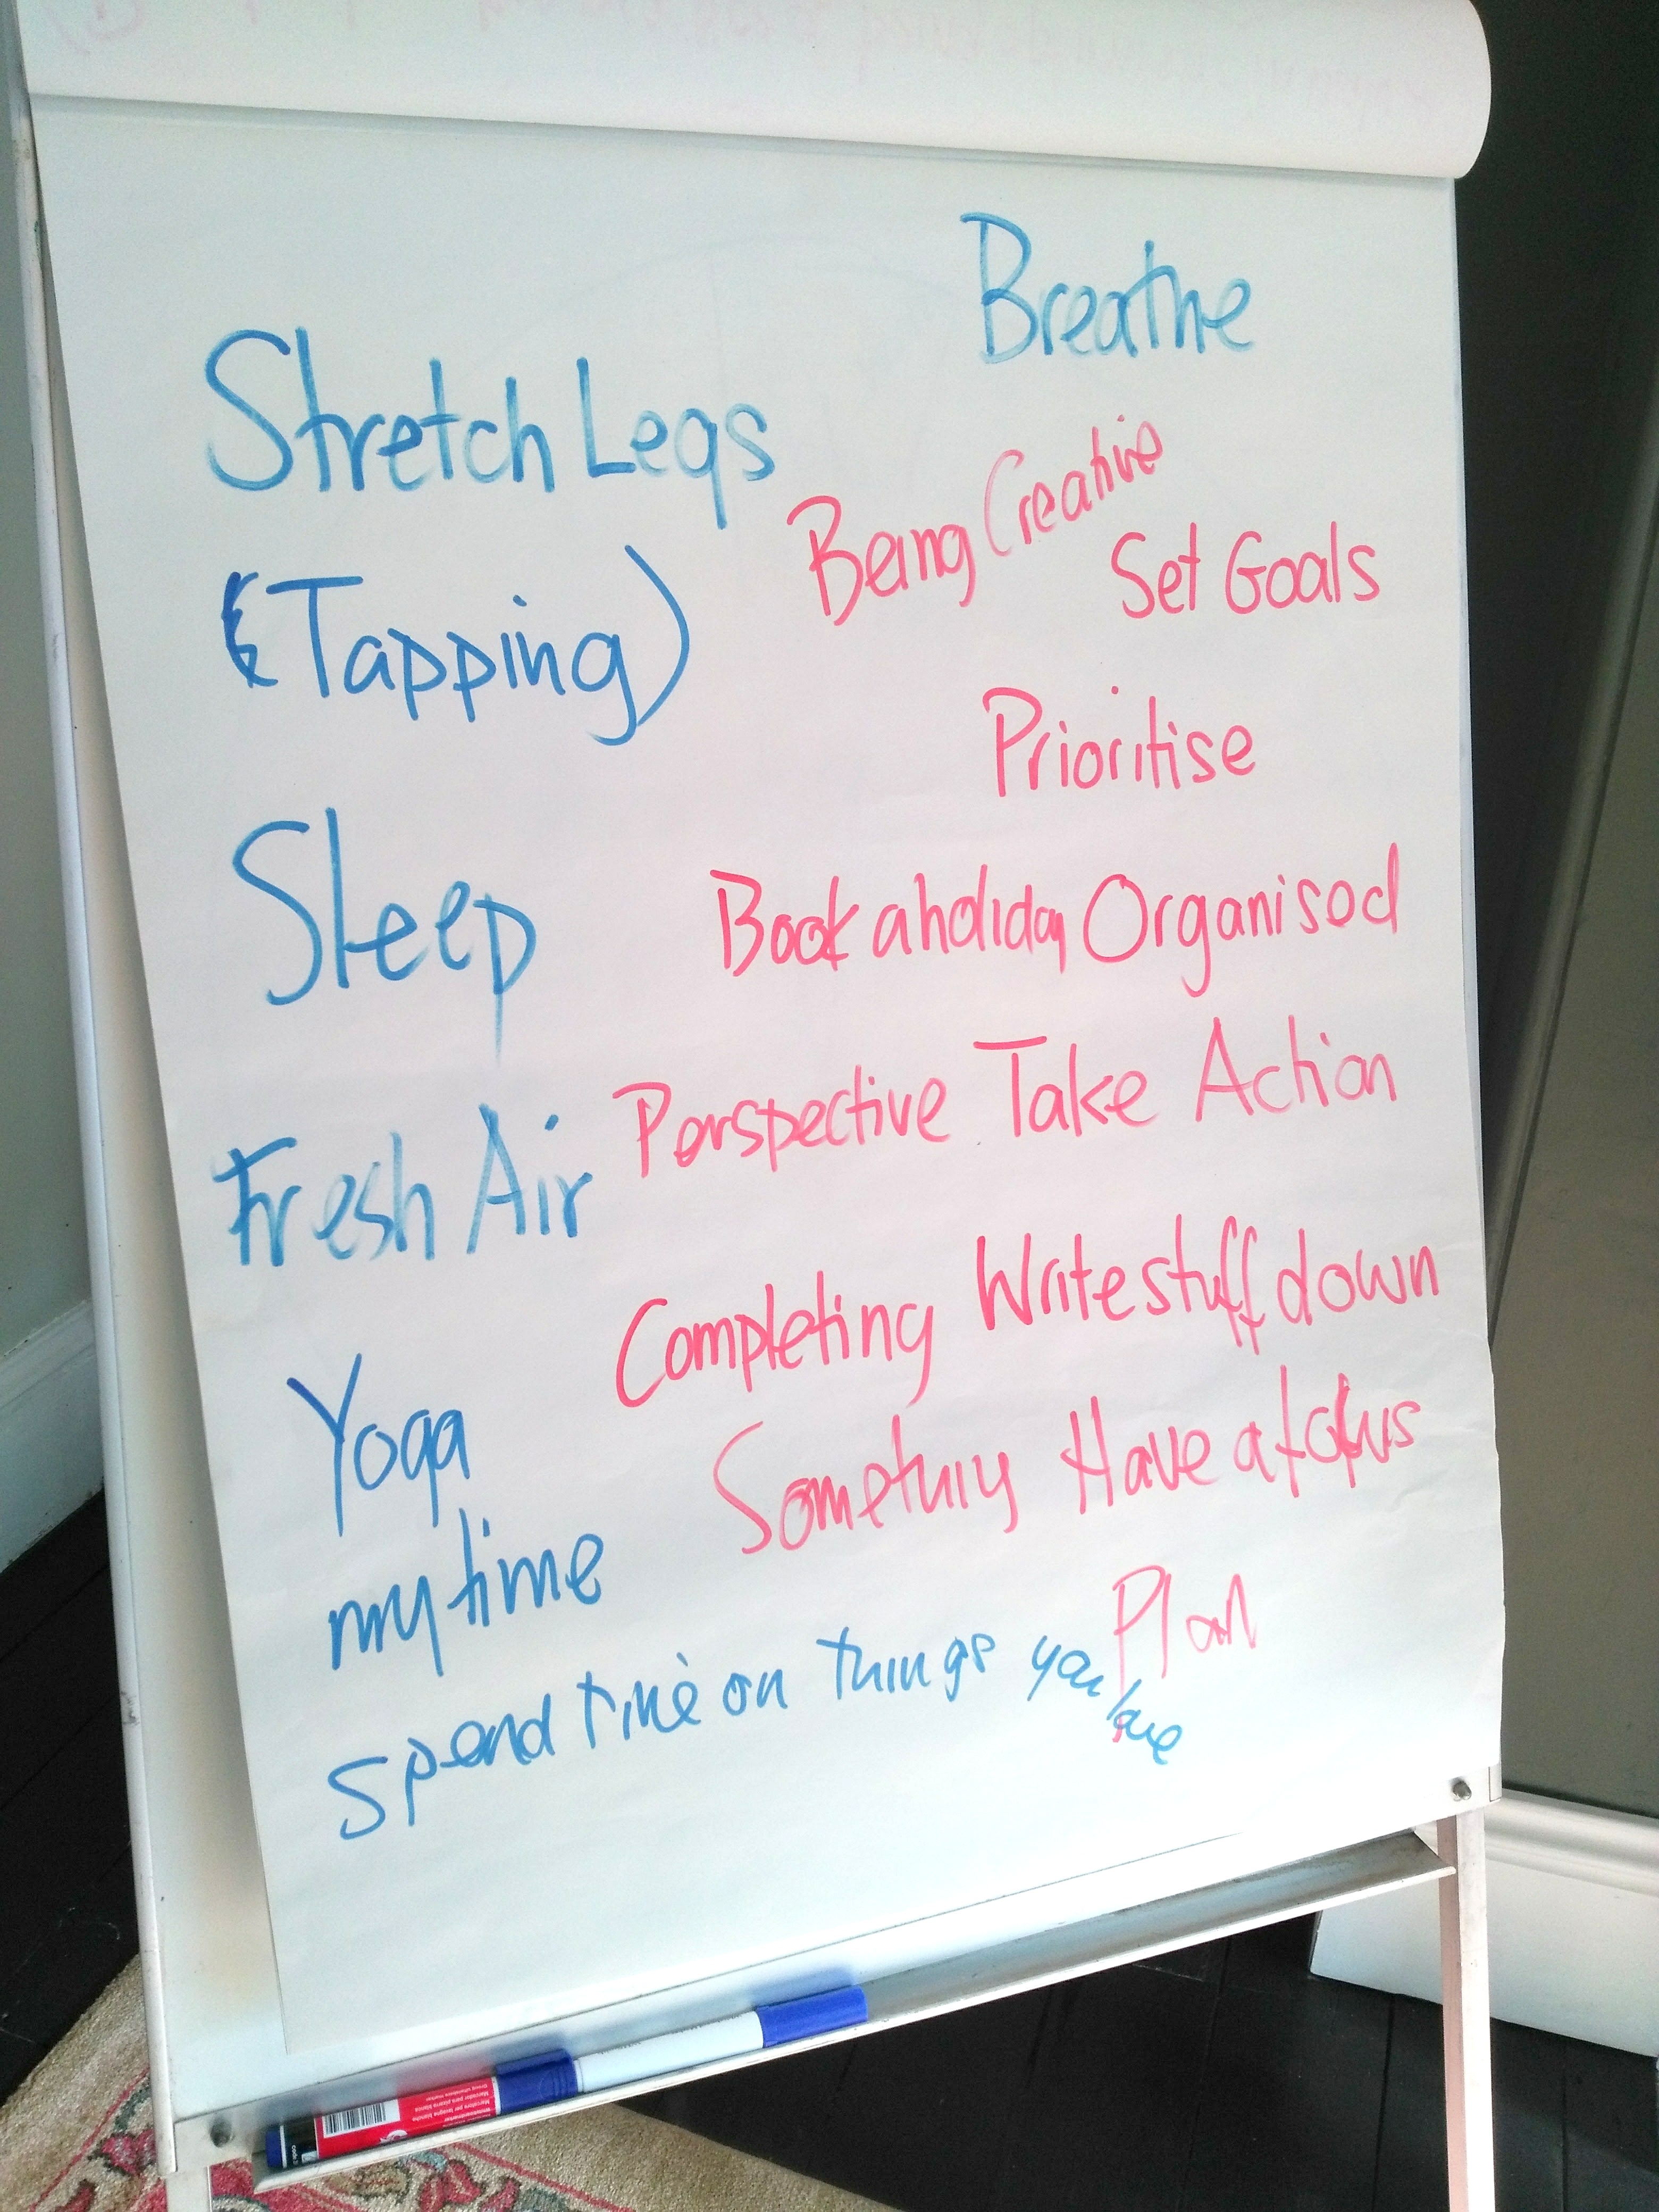 Breathe
Stretch Legs
Being Creative
Set Goals
(Tapping)
Prioritise
Sleep
Book a holiday Organised
Perspective Take Action
Fresh Air
Completing Something
Write stuff down
Yoga
Have a focus
my time
Plan
spend time on things you love